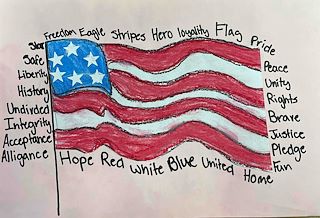 Freedom Eagle Stripes Hero loyality Flag Pride
Star
Safe
Liberty
History
Undivided
Integrity
Acceptance
Alligance
Peace
Unity
Rights
Brave
Justice
Pledge
Fun
Hope Red White Blue United Home